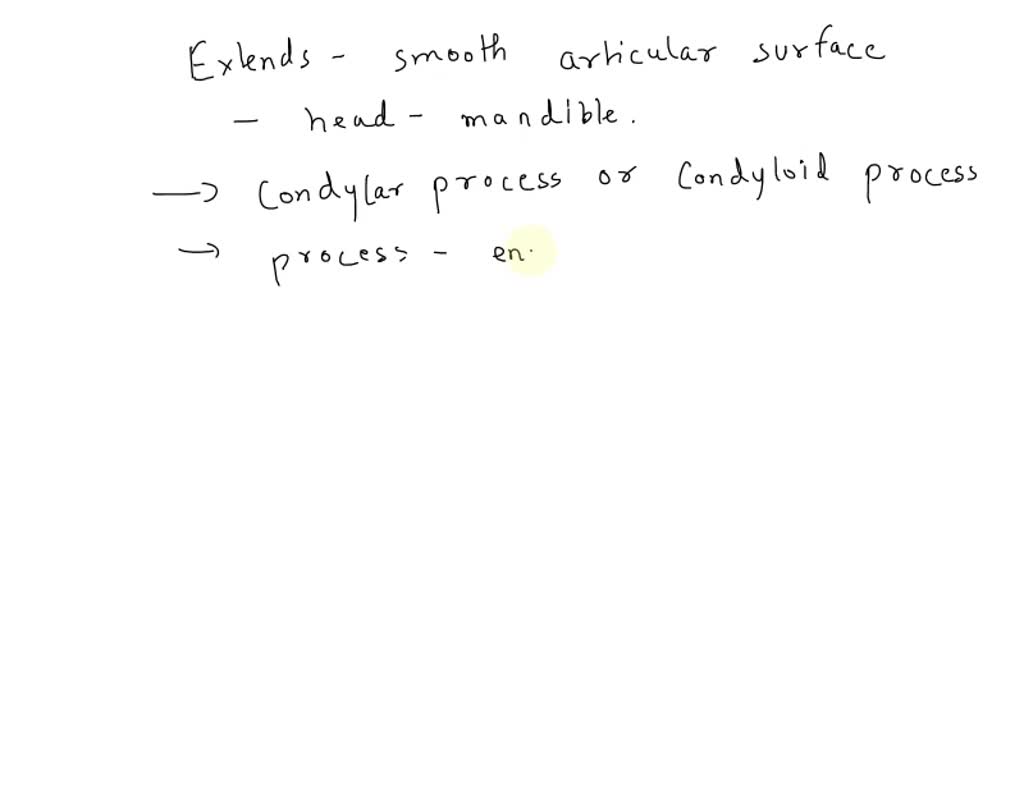 Extends - smooth articular surface
- head - mandible.
→ Condylar process or Condyloid process
→ process - en.